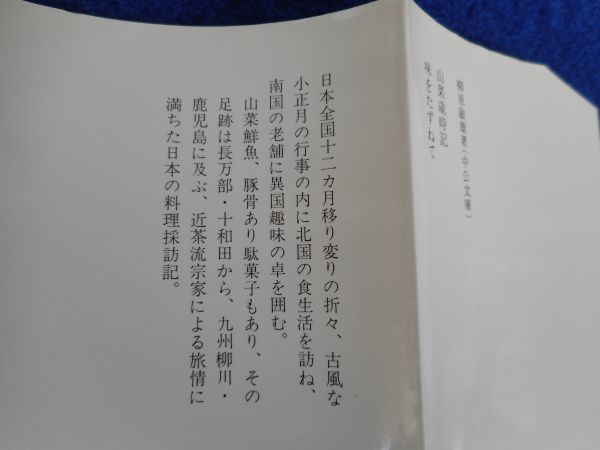 柳原敏雄著(中公文庫)
山菜歳時記
味をたずねて
日本全国十二カ月移り変りの折々、古風な
小正月の行事の内に北国の食生活を訪ね、
南国の老舗に異国趣味の卓を囲む。
山菜鮮魚、豚骨あり駄菓子もあり、その
足跡は長万部・十和田から、九州柳川・
鹿児島に及ぶ、近茶流宗家による旅情に
満ちた日本の料理採訪記。